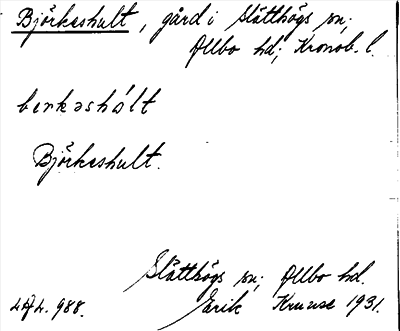 Björkeshult, gård i Slätthögs sn;
Allbo hd; Kronob. l.
berkəshólt
Björkeshult.
Slätthögs sn; Allbo hd.
Erik Kruuse 1931.